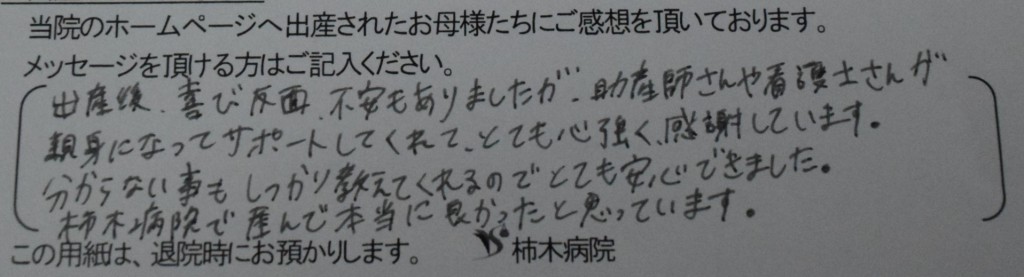 当院のホームページへ出産されたお母様たちにご感想を頂いております。
メッセージを頂ける方はご記入ください。
出産後、喜び反面、不安もありましたが、助産師さんや看護士さんが
親身になってサポートしてくれて、とても心強く、感謝しています。
分からない事もしっかり教えてくれるのでとても安心できました。
柿木病院で産んで本当に良かったと思っています。
この用紙は、退院時にお預かりします。 柿木病院